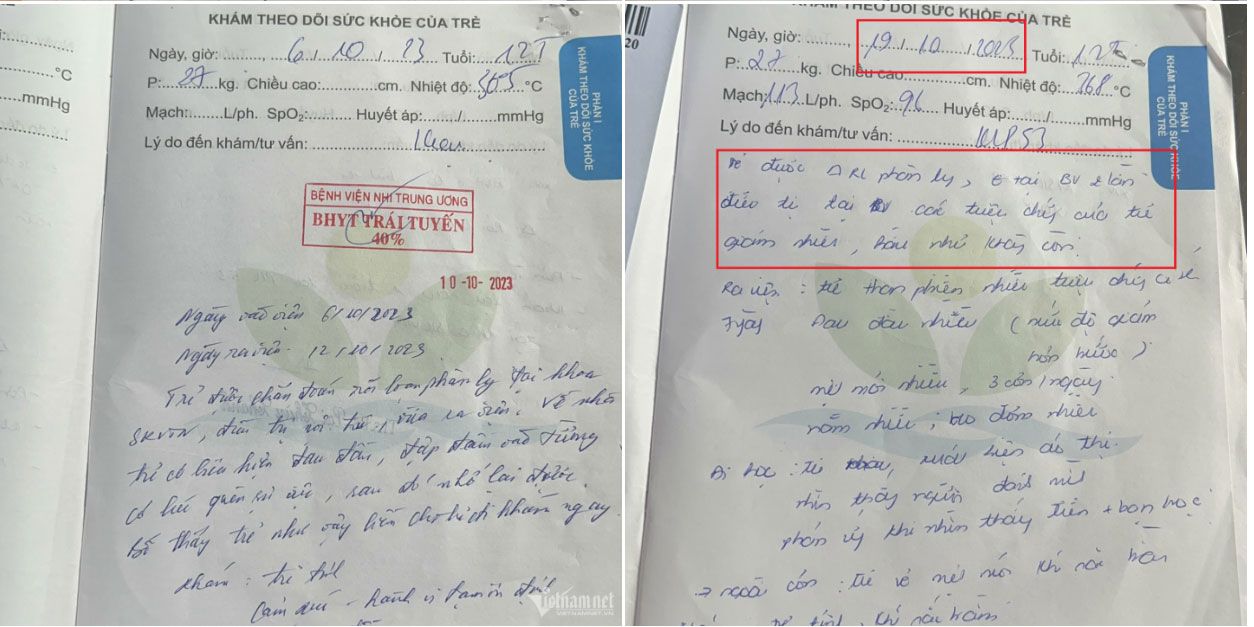 °C
mmHg
KHÁM THEO DÕI SỨC KHỎE CỦA TRẺ
Ngày, giờ: ........, 6 / 10 / 23 Tuổi: 12T
P: 27 kg. Chiều cao:............cm. Nhiệt độ: 36°5 °C
Mạch:........L/ph. SpO₂:......... Huyết áp:....../.......mmHg
Lý do đến khám/tư vấn: Khám
PHẦN I
KHÁM THEO DÕI SỨC KHỎE
CỦA TRẺ
BỆNH VIỆN NHI TRUNG ƯƠNG
BHYT TRÁI TUYẾN
40%
10 -10- 2023
Ngày vào viện 6/10/2023
Ngày ra viện - 12/10/2023
Trẻ được chẩn đoán rối loạn phân ly tại khoa
SKVTN, điều trị nội trú, vừa ra viện. Về nhà
trẻ có biểu hiện đau đầu, đập đầu vào tường
có lúc quên sự việc, sau đó nhớ lại được.
Bố thấy trẻ như vậy liền cho đi khám ngay
Khám : trẻ tỉnh
Cảm xúc - hành vi tạm ổn định
vietnamnet
20
KHÁM THEO DÕI SỨC KHỎE CỦA TRẺ
Ngày, giờ: ........, 19 / 10 / 2023 Tuổi: 12T
P: 27 kg. Chiều cao............cm. Nhiệt độ: 368 °C
Mạch: 113 L/ph. SpO₂: 96 Huyết áp:....../.......mmHg
Lý do đến khám/tư vấn:
PHẦN I
KHÁM THEO DÕI SỨC KHỎE
CỦA TRẺ
Trẻ được Δ RL phân ly, tại BV 2 lần
điều trị tại BV các triệu chứng của trẻ
giảm nhiều, hầu như không còn.
Ra viện : trẻ than phiền nhiều triệu chứng cơ thể
7 ngày Đau đầu nhiều ( mức độ giảm
hơn trước )
mệt mỏi nhiều, 3 cơn / ngày
nôn nhiều; ho đờm nhiều
Đi học : trẻ xuất hiện ảo thị
nhìn thấy người
phản ứng khi nhìn thấy + bạn học
→ ngoài cơn : trẻ vẻ mệt mỏi khí sắc trầm
trẻ tỉnh, khí sắc trầm